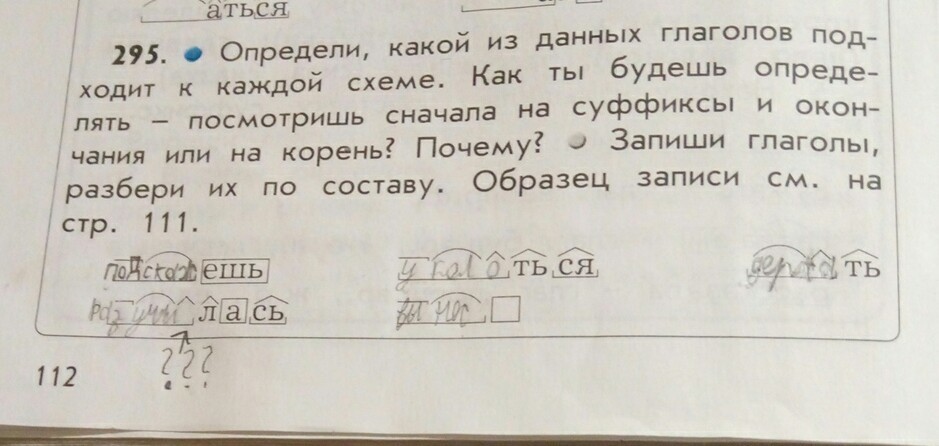 аться
295. Определи, какой из данных глаголов под-
ходит к каждой схеме. Как ты будешь опреде-
лять – посмотришь сначала на суффиксы и окон-
чания или на корень? Почему? Запиши глаголы,
разбери их по составу. Образец записи см. на
стр. 111.
подскажешь уколоться держать
разучилась вынес
???
112